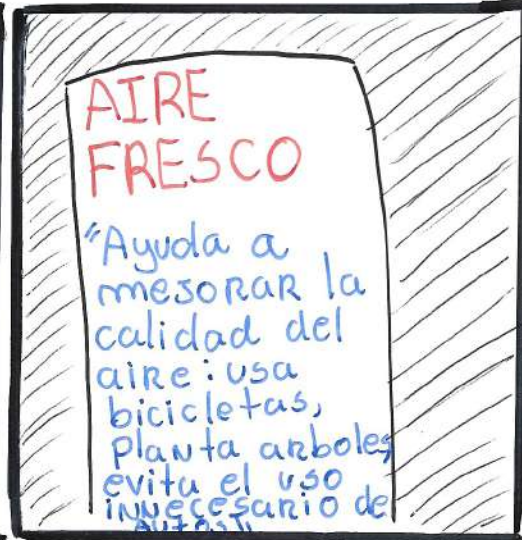 AIRE
FRESCO
"Ayuda a
mejorar la
calidad del
aire: usa
bicicletas,
planta arboles
evita el uso
innecesario de
autos"